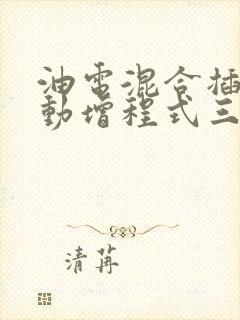 油电混合插
動增程式三
清苒